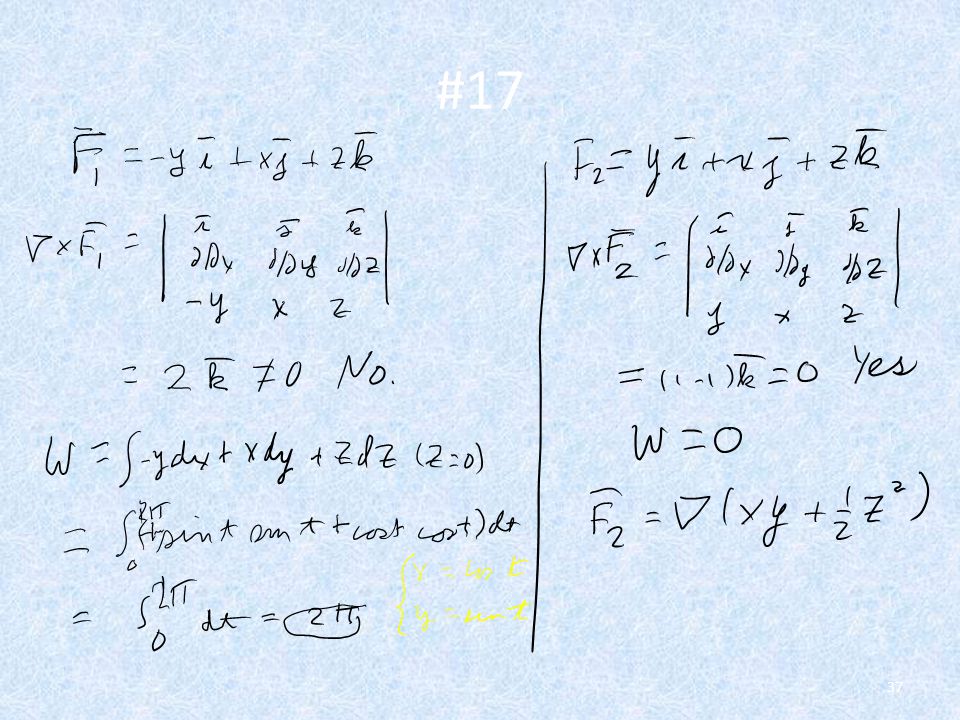 #17
F̅₁ = -y i̅ + x j̅ + z k̅
∇×F̅₁ = | i̅ j̅ k̅
∂/∂x ∂/∂y ∂/∂z
-y x z |
= 2 k̅ ≠ 0 No.
W = ∫ -ydx + x dy + z dz (z=0)
= ∫₀^2π (+sin t sin t + cos t cos t) dt
{ x = cos t
y = sin t
= ∫₀^2π dt = 2π
F̅₂ = y i̅ + x j̅ + z k̅
∇×F̅₂ = | i̅ j̅ k̅
∂/∂x ∂/∂y ∂/∂z
y x z |
= (1-1) k̅ = 0 Yes
W = 0
F̅₂ = ∇(xy + ½ z²)
37